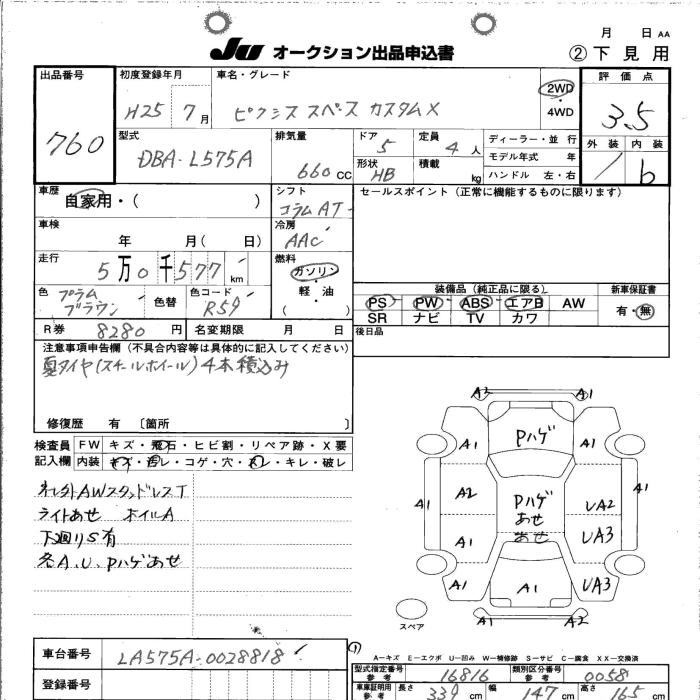 JU オークション出品申込書
月 日 AA
② 下見用
出品番号 760
初度登録年月 H25 7月
車名・グレード ピクシス スペース カスタムX
2WD・4WD
評価点 3.5
外装 内装
1 b
型式 DBA-L575A
排気量 660 CC
ドア 5
定員 4人
形状 HB
積載 kg
ディーラー・並行
モデル年式 年
ハンドル 左・右
車歴 自家用・( )
シフト コラムAT
セールスポイント(正常に機能するものに限ります)
車検 年 月( 日)
冷房 AAC
走行 5万0千577km
燃料 ガソリン・軽・油 ( )
色 プラム ブラウン
色替
色コード R59
装備品(純正品に限る)
PS PW ABS エアB AW
SR ナビ TV カワ
新車保証書
有・無
R券 8280円
名変期限 月 日
後日品
注意事項申告欄(不具合内容等は具体的に記入してください)
夏タイヤ(スチールホイール)4本積込み
修復歴 有 〔箇所 〕
検査員記入欄
FW キズ・飛石・ヒビ割・リペア跡・X要
内装 キズ・汚レ・コゲ・穴・スレ・キレ・破レ
ネレ外AWスタッドレスT
ライトあせ ホイルA
下廻りS有
各A.U.Pハゲあせ
A2 A1
A1 Pハゲ A1
A1 A2 Pハゲ あせ UA2 A1
A1 あせ UA3
A1 A1 UA3
A1 A2
スペア
A―キズ E―エクボ U―凹み W―補修跡 S―サビ C―腐食 XX―交換済
車台番号 LA575A-0028818
登録番号
①
型式指定番号 参考 16816
類別区分番号 参考 0058
車庫証明用 参考
長さ 339 cm 幅 147 cm 高さ 165 cm